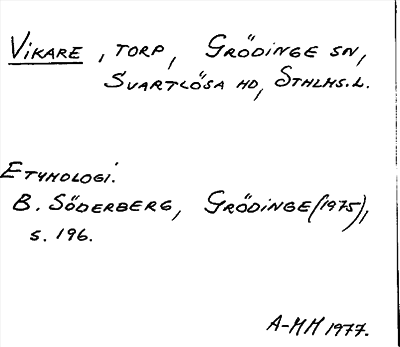 VIKARE, TORP, GRÖDINGE SN,
SVARTLÖSA HD, STHLMS.L.
ETYMOLOGI.
B. SÖDERBERG, GRÖDINGE (1975),
S. 196.
A-MM 1977.